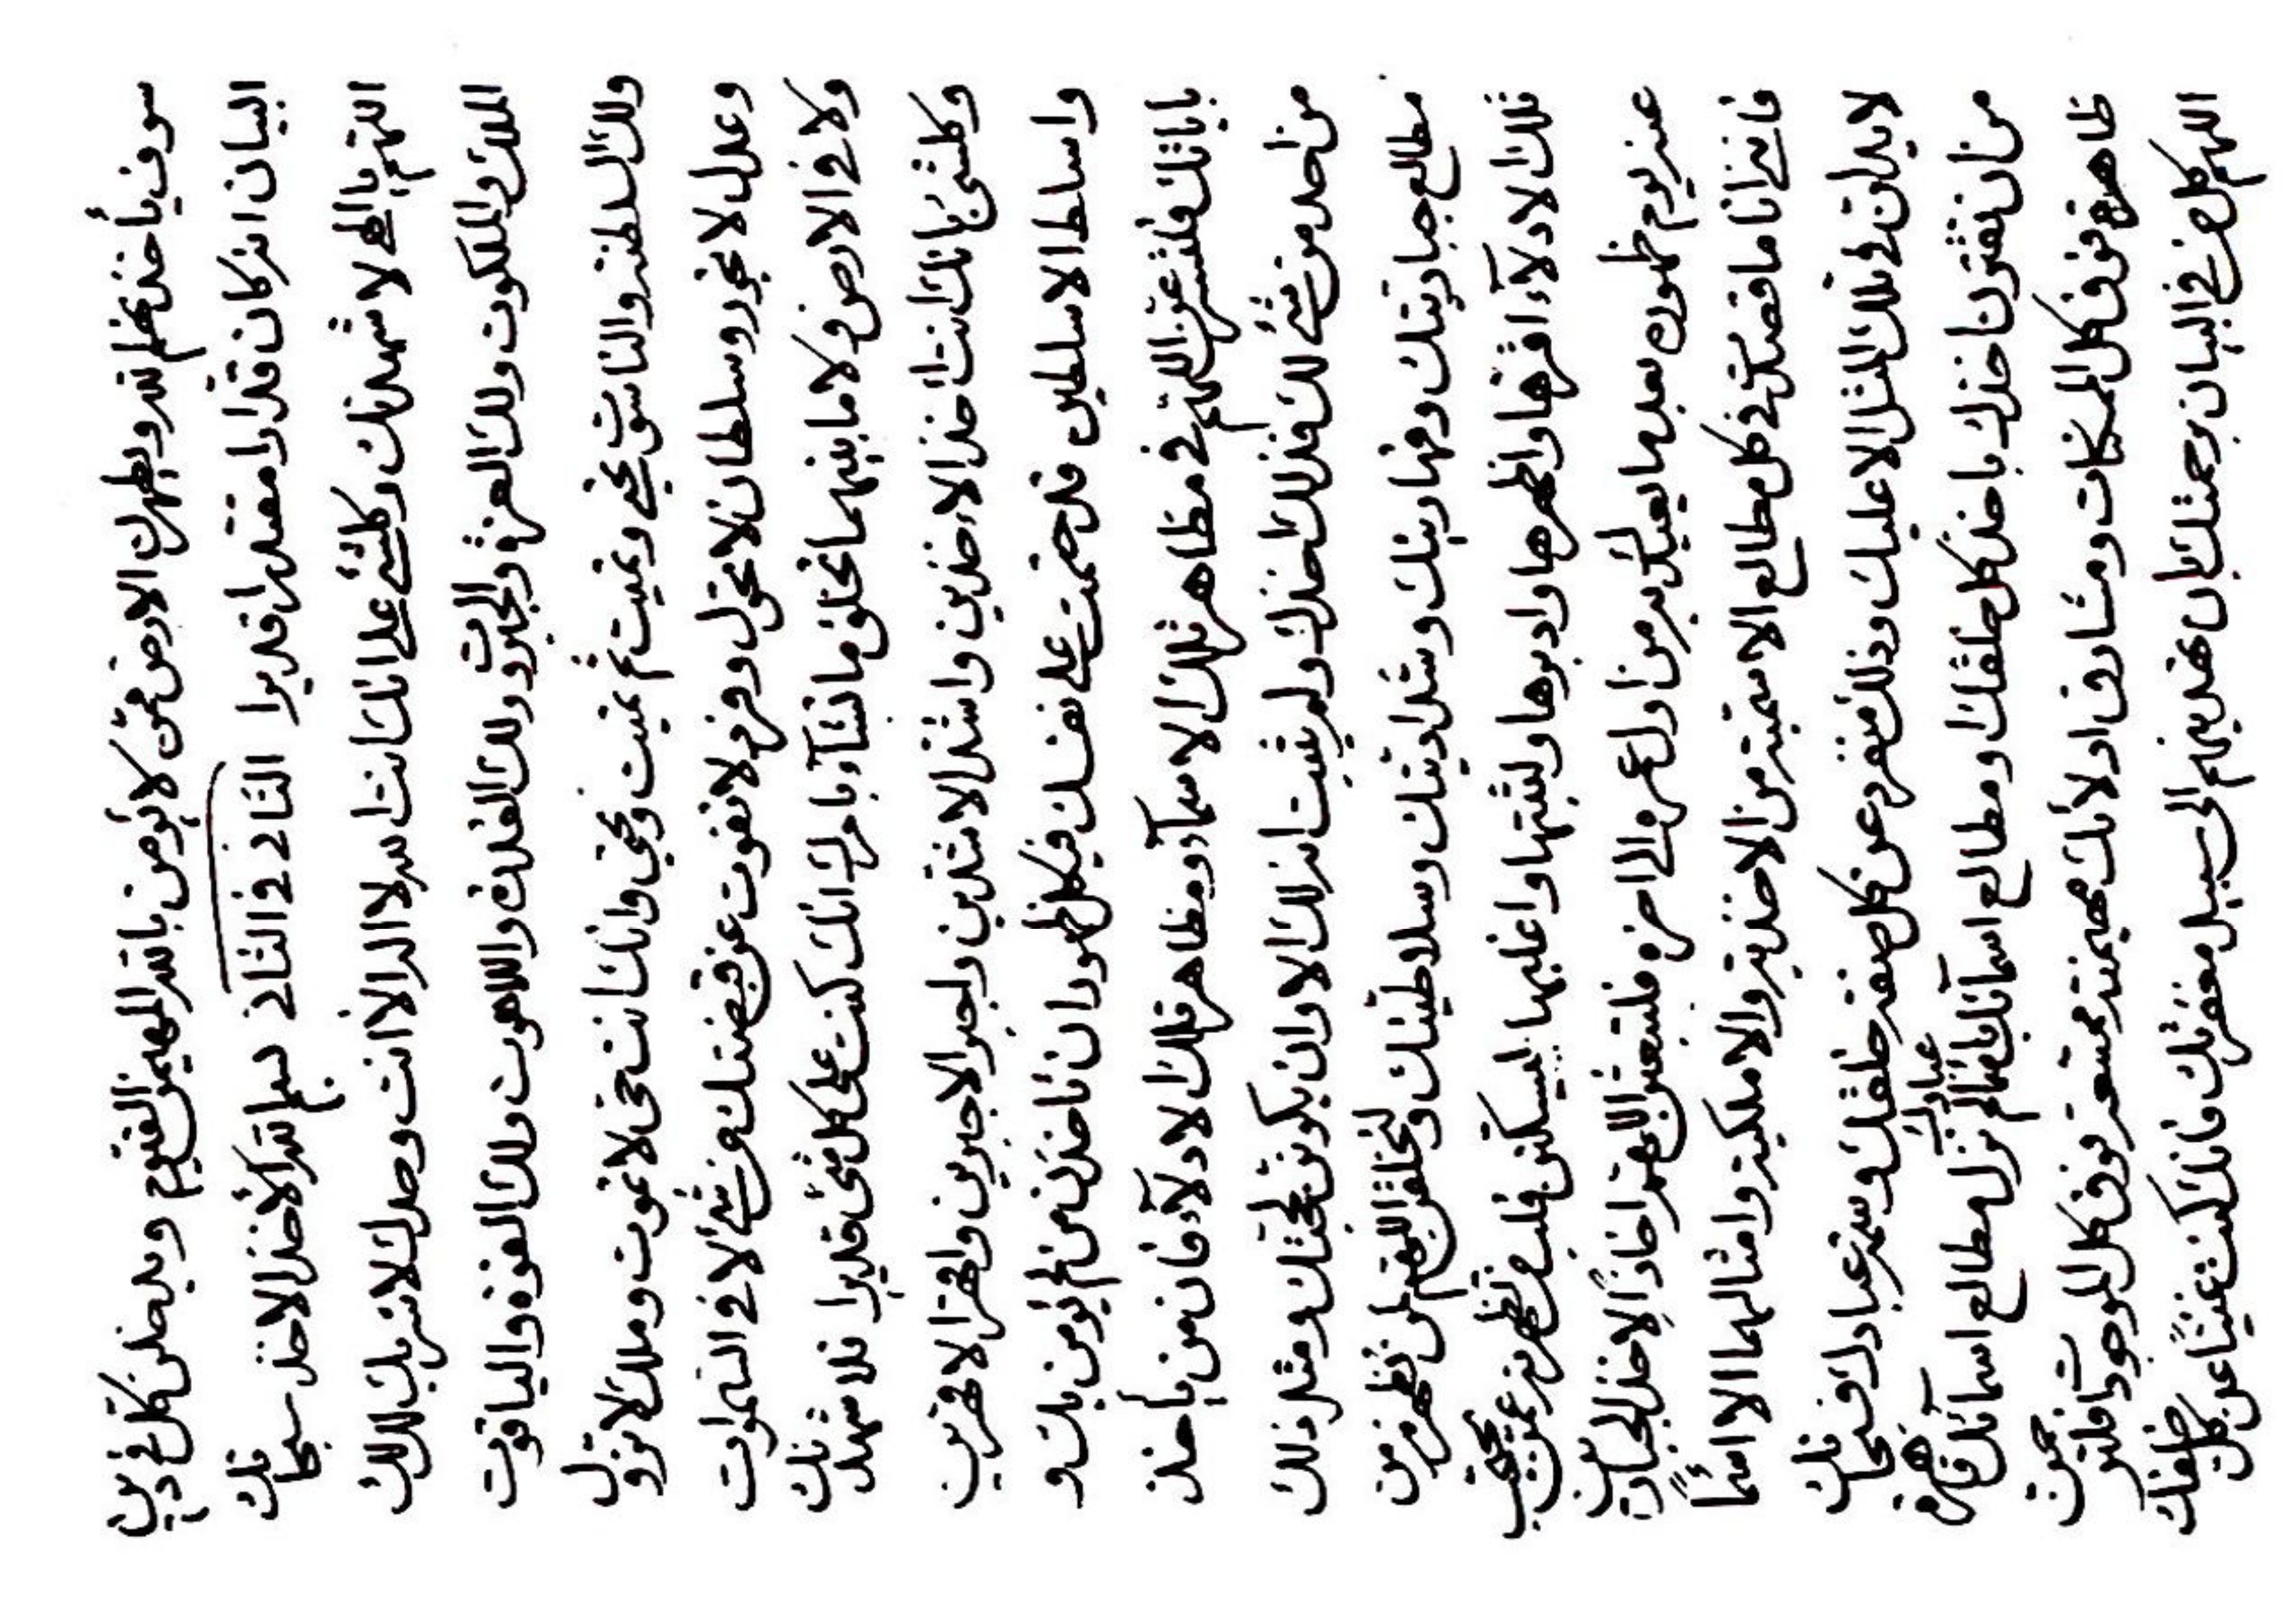 سوف يأخذنهم الله ويطهرن الارض ممن لا يؤمن بالله المهيمن القيوم ويدخلن كل في دين
البيان انه كان قدارا مقتدرا قديرا الثاني في الثاني بسم الله الأخذ الاخذ سبحانك
اللهم يا الهي لاشهدنك وكلشئ على انك انت الله لا اله الا انت وحدك لا شريك لك لك
الملك والملكوت ولك العز والجبروت ولك القدرة واللاهوت ولك القوة والياقوت
ولك السلطنة والناسوت تحيي وتميت ثم تميت وتحيي وانك انت حي لا تموت وملك لا تزول
وعدل لا تجور وسلطان لا تحول وفرد لا تفوت عن قبضتك من شئ لا في السموات
ولا في الارض ولا ما بينهما تخلق ما تشاء بامرك انك كنت على كل شئ قديرا فلاشهدنك
وكلشئ بانك انت اخذ الاءخذين واشد الاشدين واجبر الاجبرين واقهر الاقهرين
واسلط الاسلطين قد حتمت على نفسك في كل ظهور ان تاخذن من لم يؤمن بك و
باياتك فلتسرعن اللهم في مظاهر تلك الاسماء ومظاهر تلك الادلاء فان من يأخذ
من احد من شئ لك فذلك اخذك ولم يثبت انه لك الا وان يكونن لحجتك ومثل ذلك
مطالع جباريتك وقهاريتك وشداديتك وسلاطيتك ولتخلقن اللهم لمن تظهرنه من
تلك الادلاء اقهرها واظهرها وادبرها ولثبتها واغلبها ليسكنن قلب من تظهرنه عمن يحتجب
عند يوم ظهوره بعد ما يعبدك به من اول عمره الى اخره فلتبعثن اللهم اخاذا لاخذ الجبارين
فانه انا ما قصدتك في كل مطالع الاسمية من الاخذية والاملكية وامثالهما الا اسما
لا يدلن في تلك المثل الا عليك وذلك متفرد عن كل صفة خلقك وسمة عبادك فسبحانك
من ان تقترن اخذك باخذ كل خلقك او مطالع اسمائك باسماء عبادك لم تزل مطالع اسمائك قاهرة هي
ظاهرة فوق كل الممكنات ومشارق ادلائك مهيمنة ممتنعة فوق كل الموجودات فلترحمن
اللهم كل من في البيان برحمتك بان تهدينهم الى سبيل مغفرتك فانك كنت غنيا عن كل خلقك